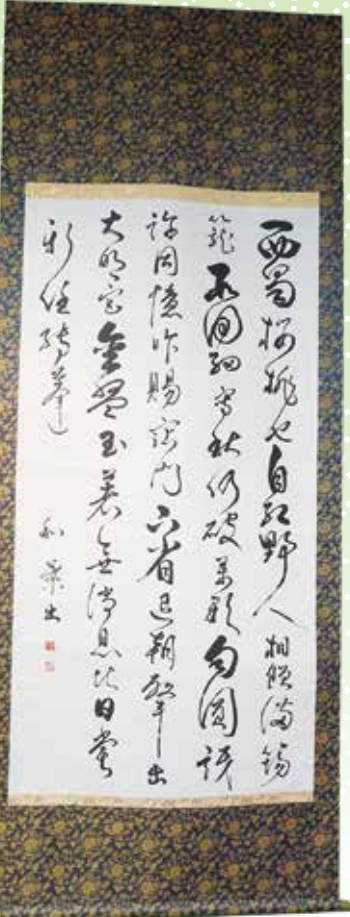 西蜀櫻桃也自紅野人相贈滿筠
籠數回細寫愁仍破萬顆勻圓訝
許同憶昨賜霑門下省退朝擎出
大明宮金盤玉箸無消息此日嘗
新任轉蓬